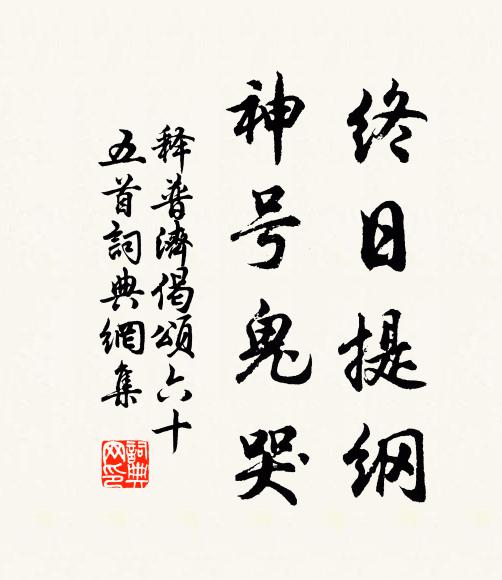 终日提纲
神号鬼哭
释普濟偈頌六十
五首詞典網集
詞典网印